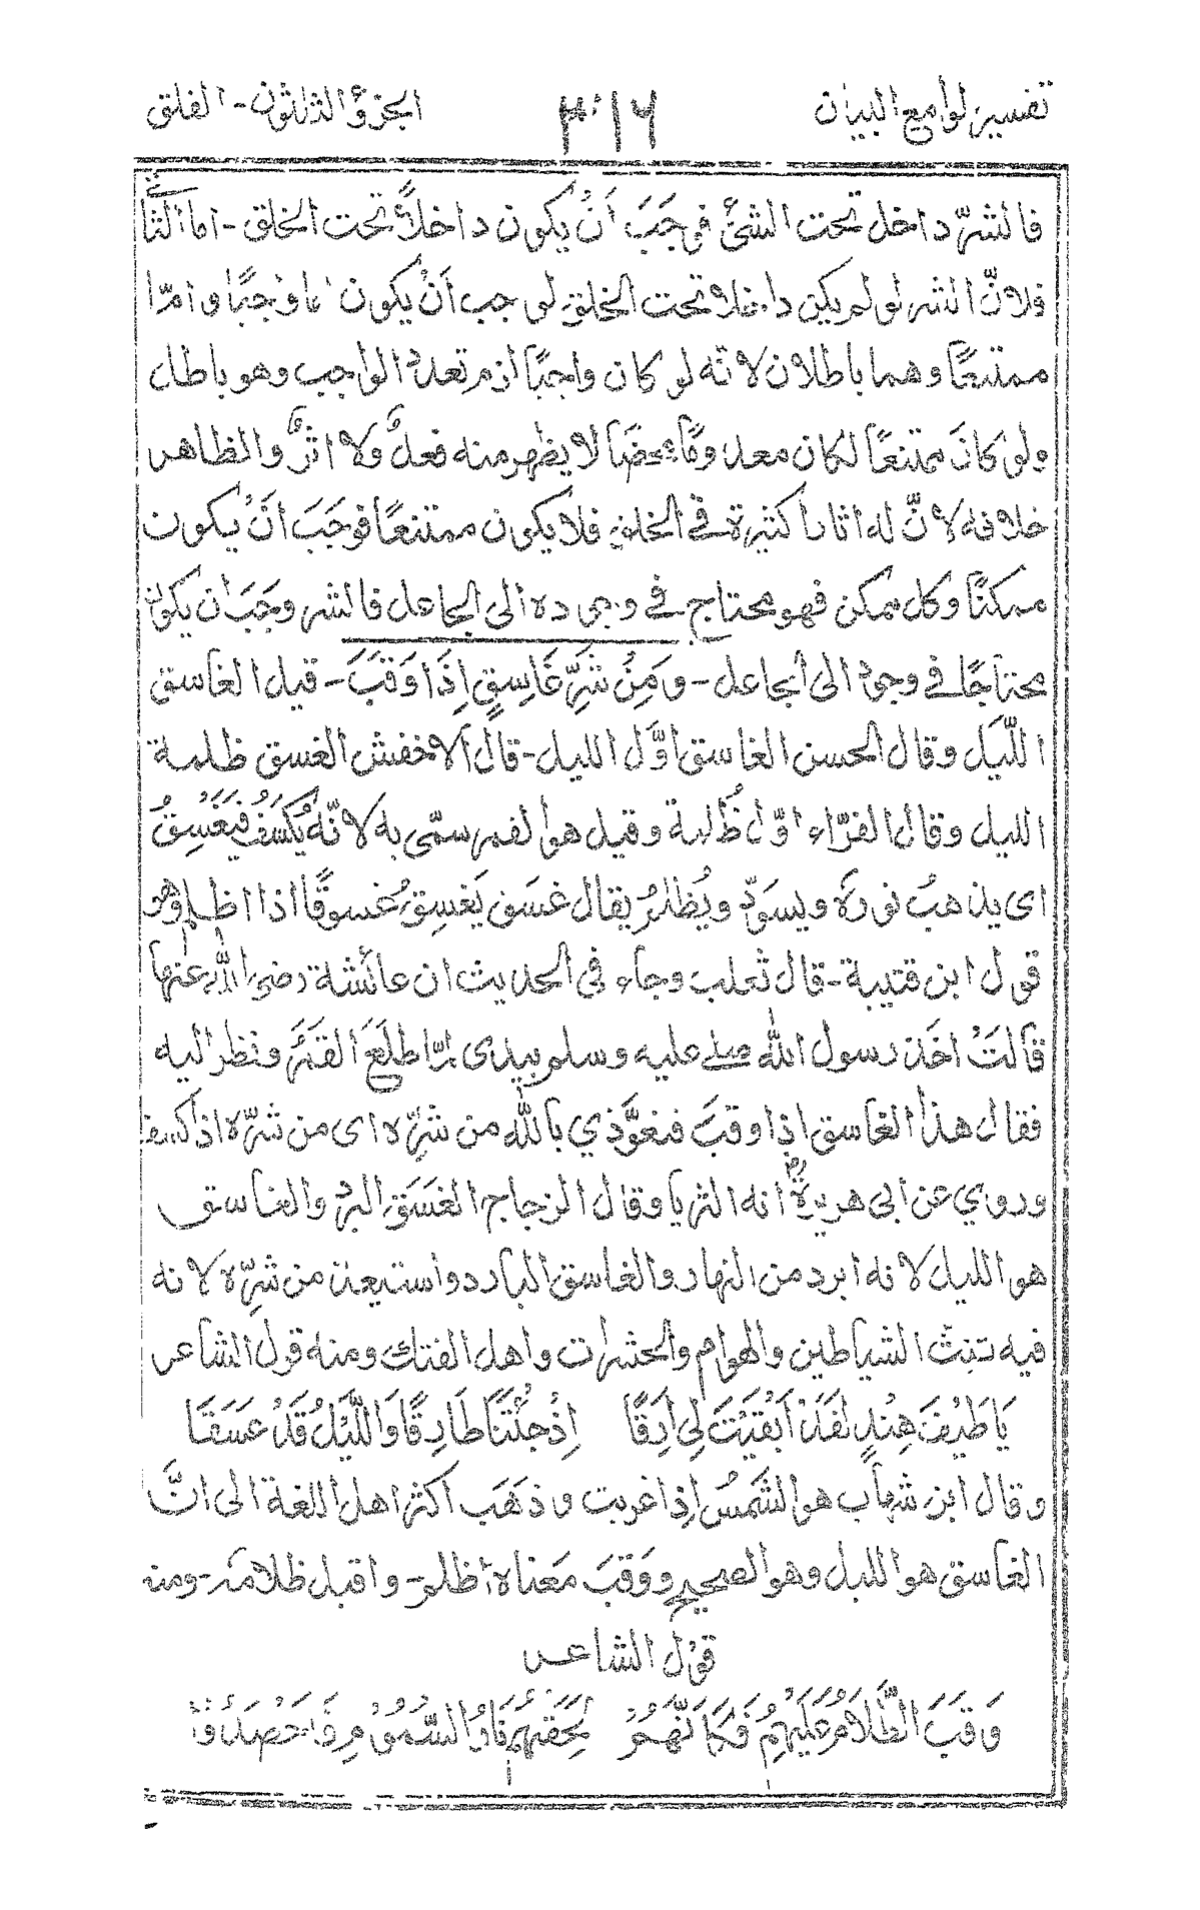 تفسير لوامع البيان ٣٠١٦ الجزؤ الثلاثون - الفلق
فالشرّ داخل تحت الشئ فوجَبَ أنْ يكون داخلاً تحت الخلق - اما الثانى
فلانّ الشر لو لم يكن داخلا تحت الخلق لوجب أنْ يكون اما واجبًا و امّا
ممتنعًا وهما باطلان لانّه لو كان واجبًا لزم تعدد الواجب وهو باطل
ولو كانَ ممتنعًا لكان معدومًا محضا لا يظهر منه فعلٌ ولا اثرٌ والظاهر
خلافه لانّ له اثارا كثيرة في الخلق فلا يكون ممتنعًا فوجَبَ انْ يكون
ممكنًا وكل ممكن فهو محتاج في وجوده الى الجاعل فالشر وجَبَ ان يكون
محتاجًا في وجوده الى الجاعل - وَمِنْ شَرِّ غَاسِقٍ إِذَا وَقَبَ - قيل الغاسق
اللّيل وقال الحسن الغاسق اوَّل الليل - قال الاخفش الغسق ظلمة
الليل وقال الفرّاء اوّل ظُلمة وقيل هو القمر سمّى به لانّهُ يُكسَفُ فيَغْسِقُ
اى يذهبُ نوره ويسودّ ويُظلمُ يقال غسَق يَغسِقُ غسوقًا اذا اظلم وهو
قول ابن قتيبة - قال ثعلب وجاء في الحديث ان عائشة رضى الله عنها
قالتْ اخَذ رسول الله صلے عليه وسلم بيدى لمّا طلَعَ القمَرُ ونظر اليه
فقال هذا الغاسق إذا وقبَ فتعوَّذي بالله من شرِّه اى من شرِّه اذا كسف
وروي عن ابى هريرةؓ انه الثريا وقال الزجاج الغسَق البرد والغاسق
هو الليل لانه ابرد من النهار والغاسق البارد واستيعذ من شرِّه لانه
فيه تنبثّ الشياطين والهوام والحشرات واهل الفتك ومنه قول الشاعر
يَا طَيْفَ هِنْدٍ لقَدْ أَبْقَيْتَ لِي أَرَقًا إِذْ جِئْتَنَا طَارِقًا وَاللَّيْلُ قَدْ غَسَقَا
وقال ابن شهاب هو الشمسُ إذا غربت وذهَب اكثر اهل اللغة الى انَّ
الغاسق هو الليل وهو الصحيح ووَقبَ معَناه اظلم - واقبل ظلامه - ومنه
قول الشاعر
وَقَبَ الظَّلَامُ عَلَيْهِمُ فَكَأَنَّهُمْ لَحِقَتْهُمْ نَارُ السَّمُوْمِ فَاحْصَدُوْا